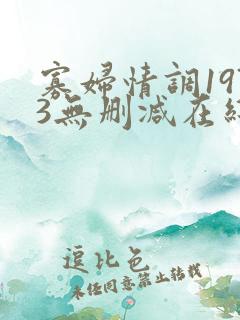 寡婦情調197
3無刪減在線
逗比色
未经同意禁止转载